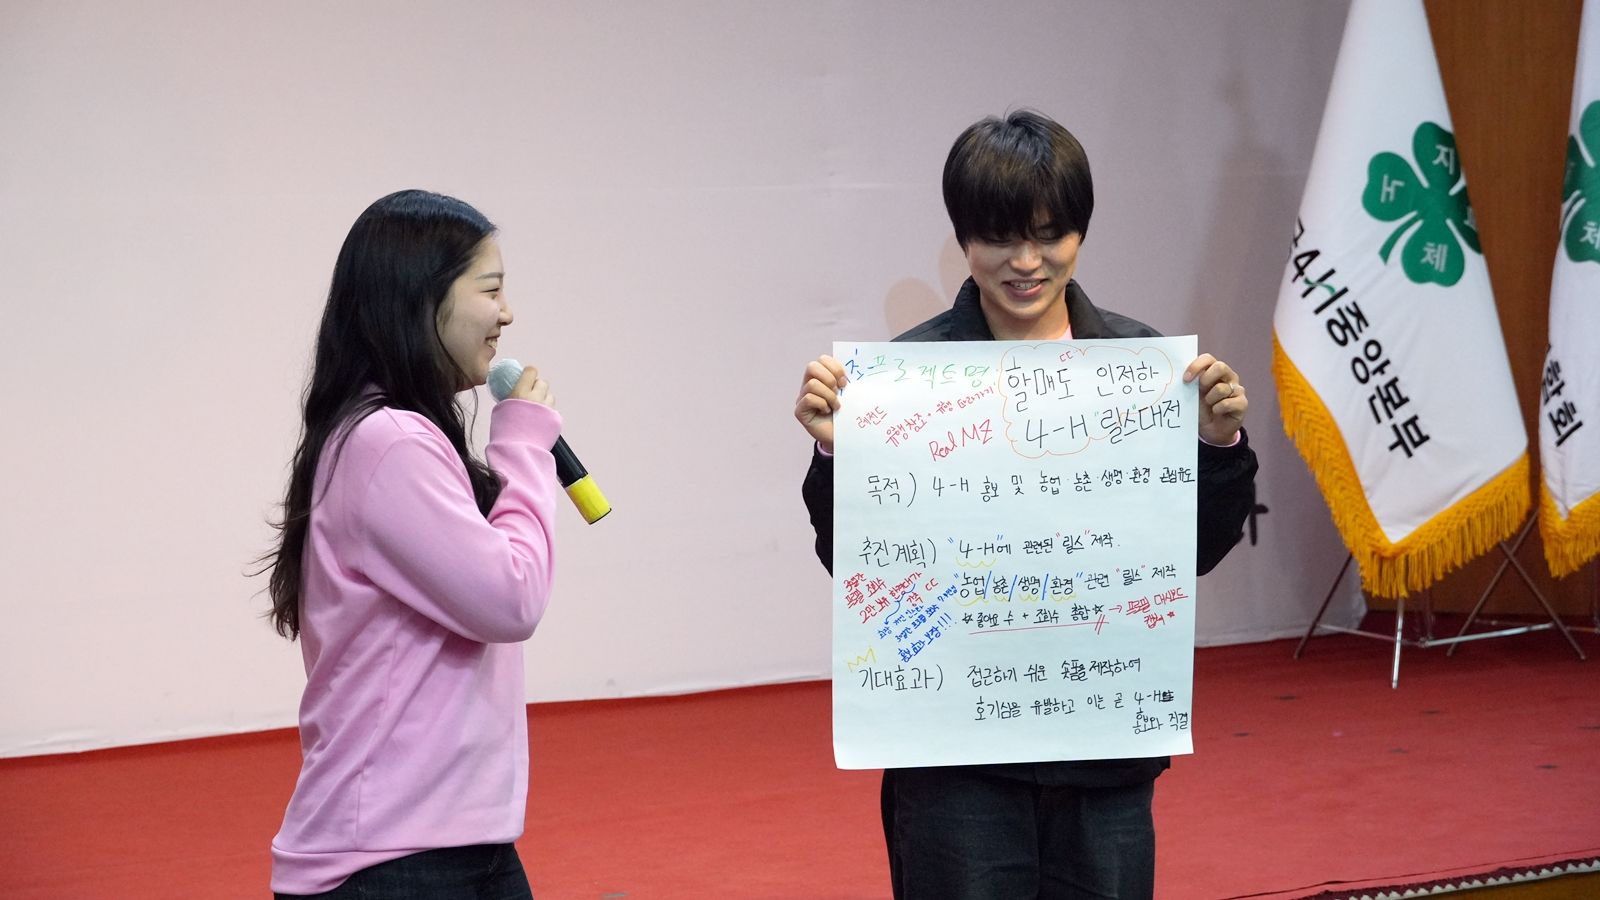 조-프로젝트명:
할매도 인정한
4-H "릴스"대전
레전드
유행창조·유행 따라가기
Real MZ
목적) 4-H 홍보 및 농업·농촌·생명·환경 관심유도
추진계획) "4-H"에 관련된 "릴스" 제작.
"농업/농촌/생명/환경" 관련 "릴스" 제작
☆좋아요 수 + 조회수 총합☆ → 프로필 대시보드
캡쳐
30일간
프로필 조회수
홍보효과 보장!!!
기대효과) 접근하기 쉬운 숏폼을 제작하여
호기심을 유발하고 이는 곧 4-H
홍보와 직결
지
노
체
4-H중앙본부
체
회